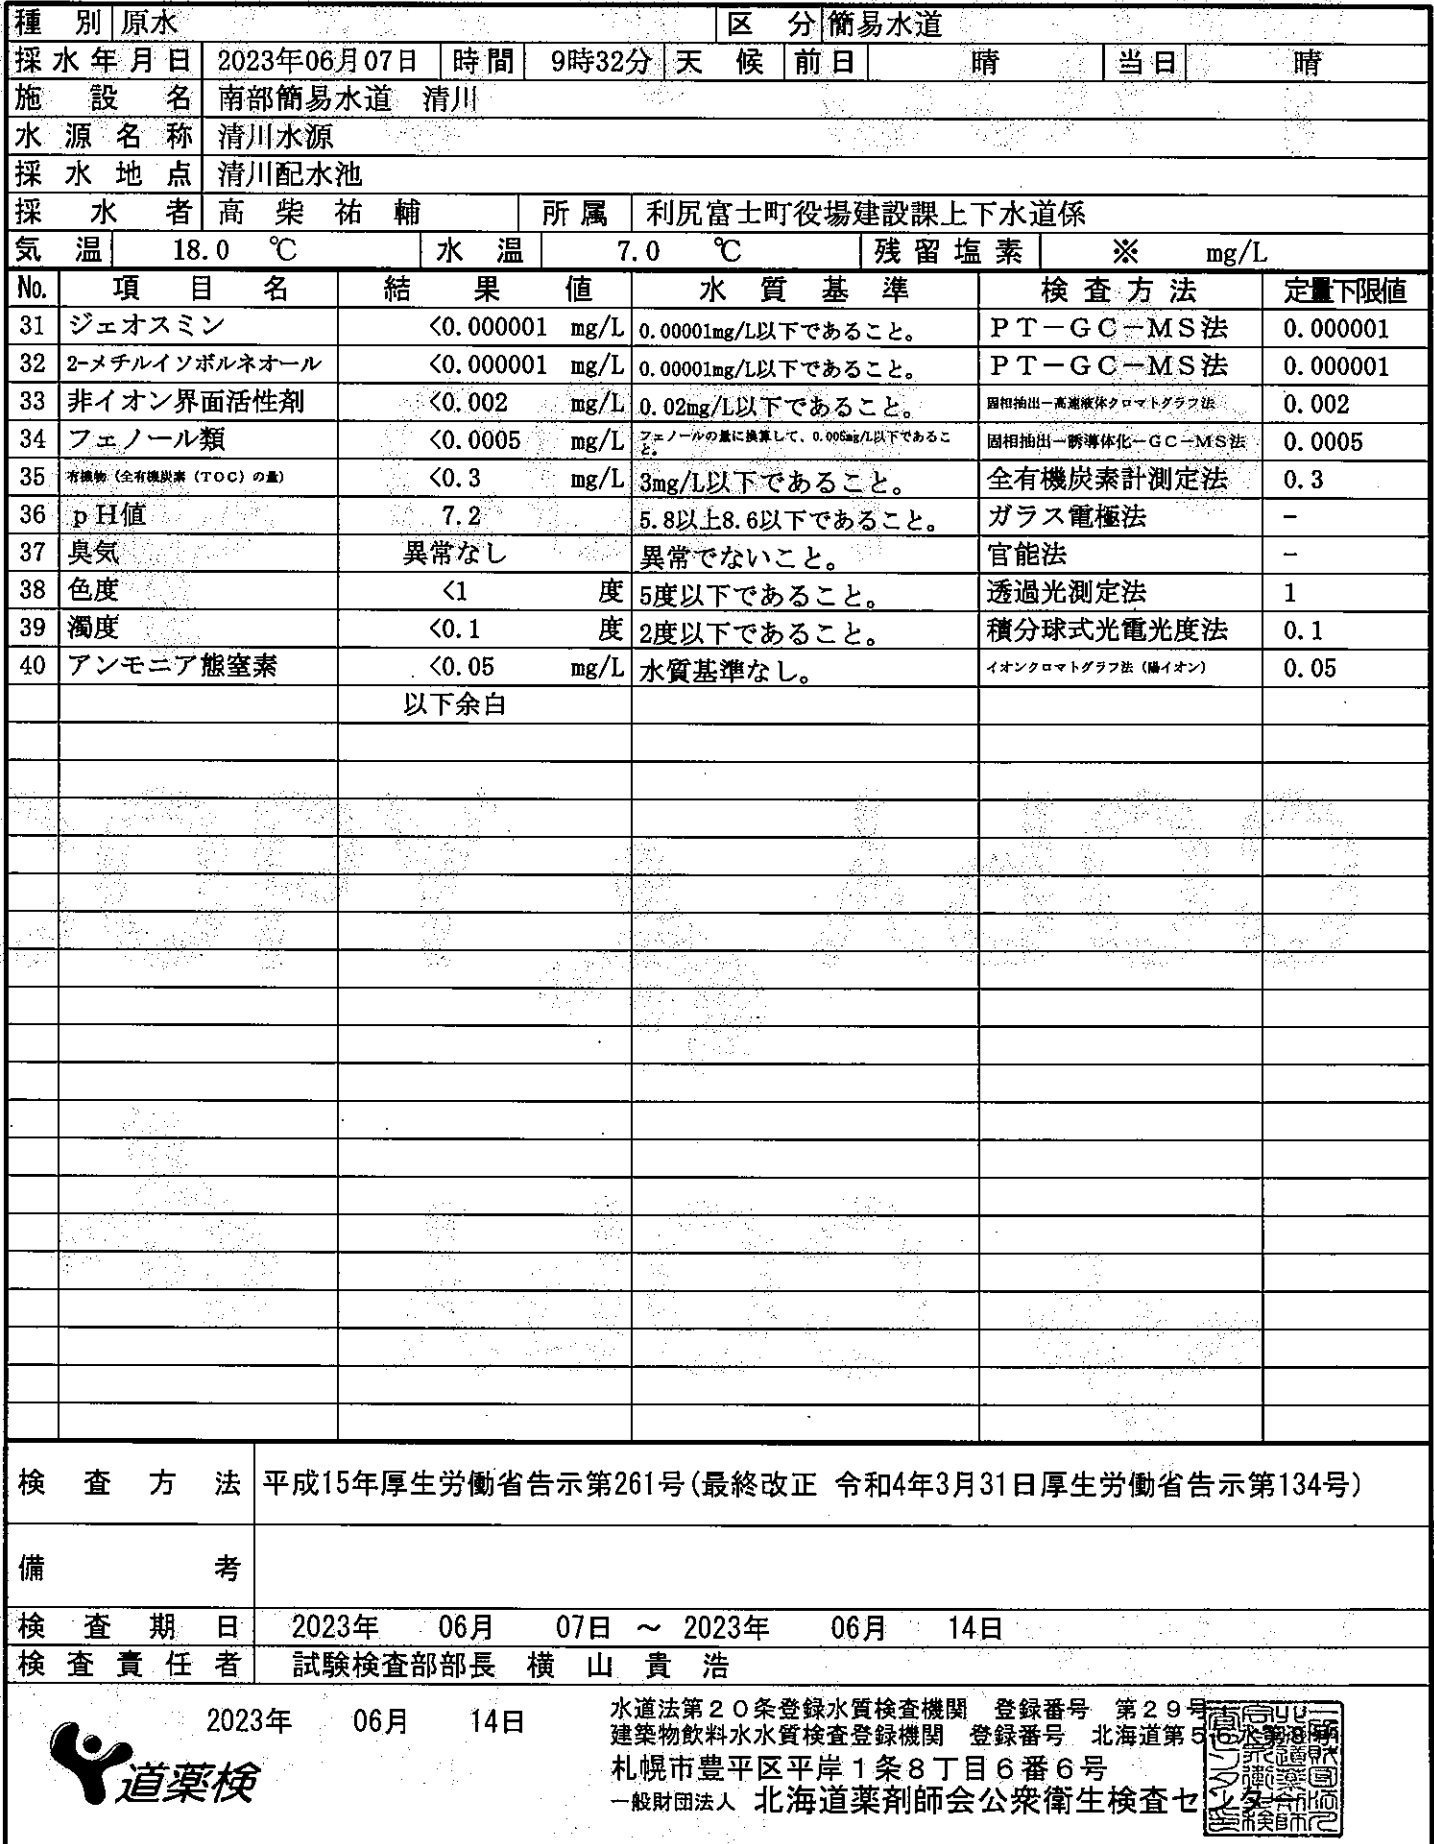 種別 原水 区分 簡易水道
採水年月日 2023年06月07日 時間 9時32分 天候 前日 晴 当日 晴
施設名 南部簡易水道 清川
水源名称 清川水源
採水地点 清川配水池
採水者 高柴祐輔 所属 利尻富士町役場建設課上下水道係
気温 18.0 ℃ 水温 7.0 ℃ 残留塩素 ※ mg/L
No. 項目名 結果値 水質基準 検査方法 定量下限値
31 ジェオスミン <0.000001 mg/L 0.00001mg/L以下であること。 PT-GC-MS法 0.000001
32 2-メチルイソボルネオール <0.000001 mg/L 0.00001mg/L以下であること。 PT-GC-MS法 0.000001
33 非イオン界面活性剤 <0.002 mg/L 0.02mg/L以下であること。 固相抽出-高速液体クロマトグラフ法 0.002
34 フェノール類 <0.0005 mg/L フェノールの量に換算して、0.005mg/L以下であること。 固相抽出-誘導体化-GC-MS法 0.0005
35 有機物（全有機炭素（TOC）の量） <0.3 mg/L 3mg/L以下であること。 全有機炭素計測定法 0.3
36 pH値 7.2 5.8以上8.6以下であること。 ガラス電極法 -
37 臭気 異常なし 異常でないこと。 官能法 -
38 色度 <1 度 5度以下であること。 透過光測定法 1
39 濁度 <0.1 度 2度以下であること。 積分球式光電光度法 0.1
40 アンモニア態窒素 <0.05 mg/L 水質基準なし。 イオンクロマトグラフ法（陽イオン） 0.05
以下余白
検査方法 平成15年厚生労働省告示第261号(最終改正 令和4年3月31日厚生労働省告示第134号)
備考
検査期日 2023年 06月 07日 ～ 2023年 06月 14日
検査責任者 試験検査部部長 横山貴浩
2023年 06月 14日
道薬検
水道法第20条登録水質検査機関 登録番号 第29号
建築物飲料水水質検査登録機関 登録番号 北海道第56水第8号
札幌市豊平区平岸1条8丁目6番6号
一般財団法人 北海道薬剤師会公衆衛生検査センター